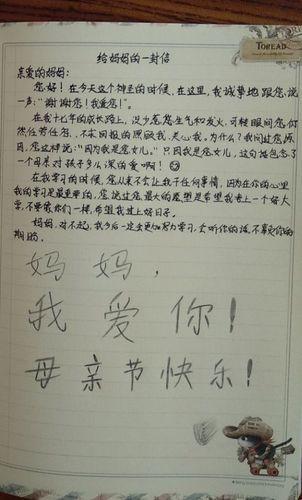 TOREAD
给妈妈的一封信
亲爱的妈妈:
您好!在今天这个神圣的时候,在这里,我诚挚地跟您说
一声:“谢谢您!我爱您!”。
在我十七年的成长路上,没少惹您生气和发火,可转眼间您仍
然任劳任怨、不求回报的照顾我,关心我。为什么?我问过您原
因,您这样说:“因为我是您女儿。”只因我是您女儿,这句话包含了
一个母亲对孩子多么深的爱啊!
在我学习的时候,您从来不会让我干任何事情,因为在你的心里
我的学习是最重要的,您说过您最大的愿望是希望我考上一个好大
学,不要像你们一样,希望我过上好日子。
妈妈,对不起,我今后一定会更加努力学习,会听你的话,不辜负你的
期盼。
妈妈,
我爱你!
母亲节快乐!